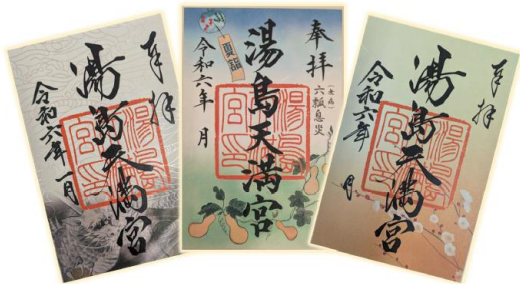 奉拝
湯島天満宮
令和六年 一月
奉拝
(無病)
六瓢息災
湯島天満宮
夏詣
令和六年 月
奉拝
湯島天満宮
令和六年 月